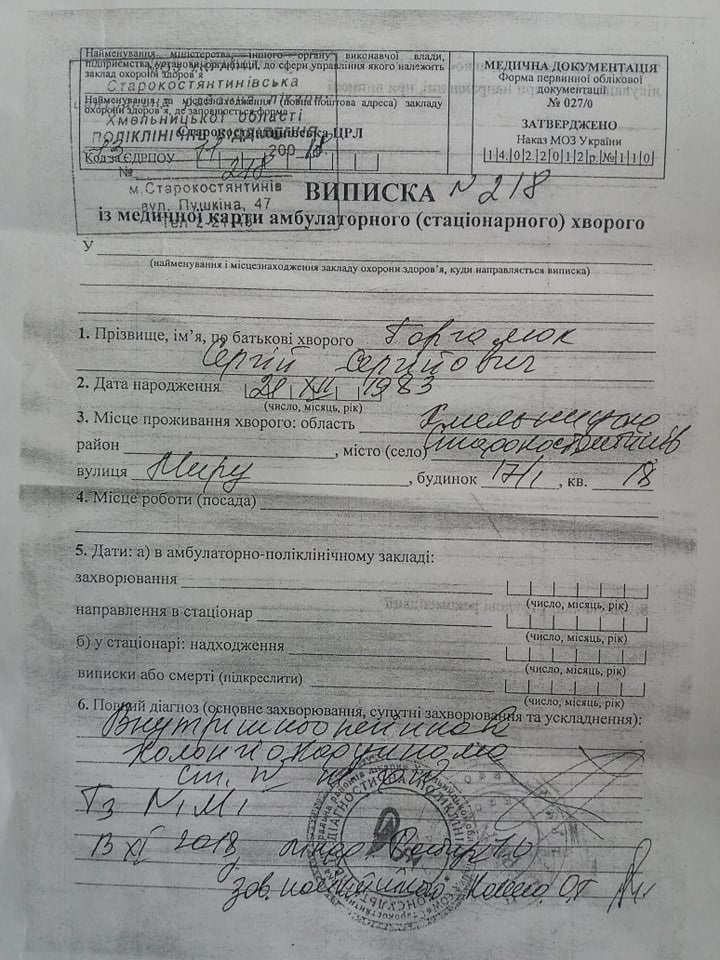 Найменування міністерства, іншого органу виконавчої влади, підприємства, установи, організації, до сфери управління якого належить заклад охорони здоров'я
Найменування та місцезнаходження (повна поштова адреса) закладу охорони здоров'я, де заповнюється форма
Старокостянтинівська ЦРЛ
Код за ЄДРПОУ
Старокостянтинівська
Хмельницької області
ПОЛІКЛІНІЧНЕ
200
№ 218
м. Старокостянтинів
вул. Пушкіна, 47
МЕДИЧНА ДОКУМЕНТАЦІЯ
Форма первинної облікової
документації
№ 027/0
ЗАТВЕРДЖЕНО
Наказ МОЗ України
14.02.2012р.№110
ВИПИСКА N 218
із медичної карти амбулаторного (стаціонарного) хворого
У
(найменування і місцезнаходження закладу охорони здоров'я, куди направляється виписка)
1. Прізвище, ім'я, по батькові хворого
Сергій Сергійович
2. Дата народження 21 XII 1983
(число, місяць, рік)
3. Місце проживання хворого: область Хмельницька
район , місто (село) Старокостянтинів
вулиця Миру , будинок 17/1 , кв. 18
4. Місце роботи (посада)
5. Дати: а) в амбулаторно-поліклінічному закладі:
захворювання
(число, місяць, рік)
направлення в стаціонар
(число, місяць, рік)
б) у стаціонарі: надходження
(число, місяць, рік)
виписки або смерті (підкреслити)
(число, місяць, рік)
6. Повний діагноз (основне захворювання, супутні захворювання та ускладнення):
Внутрішньопечінкова
холангіокарцинома
ст. IV
T3 N1 M1
В XI 2018